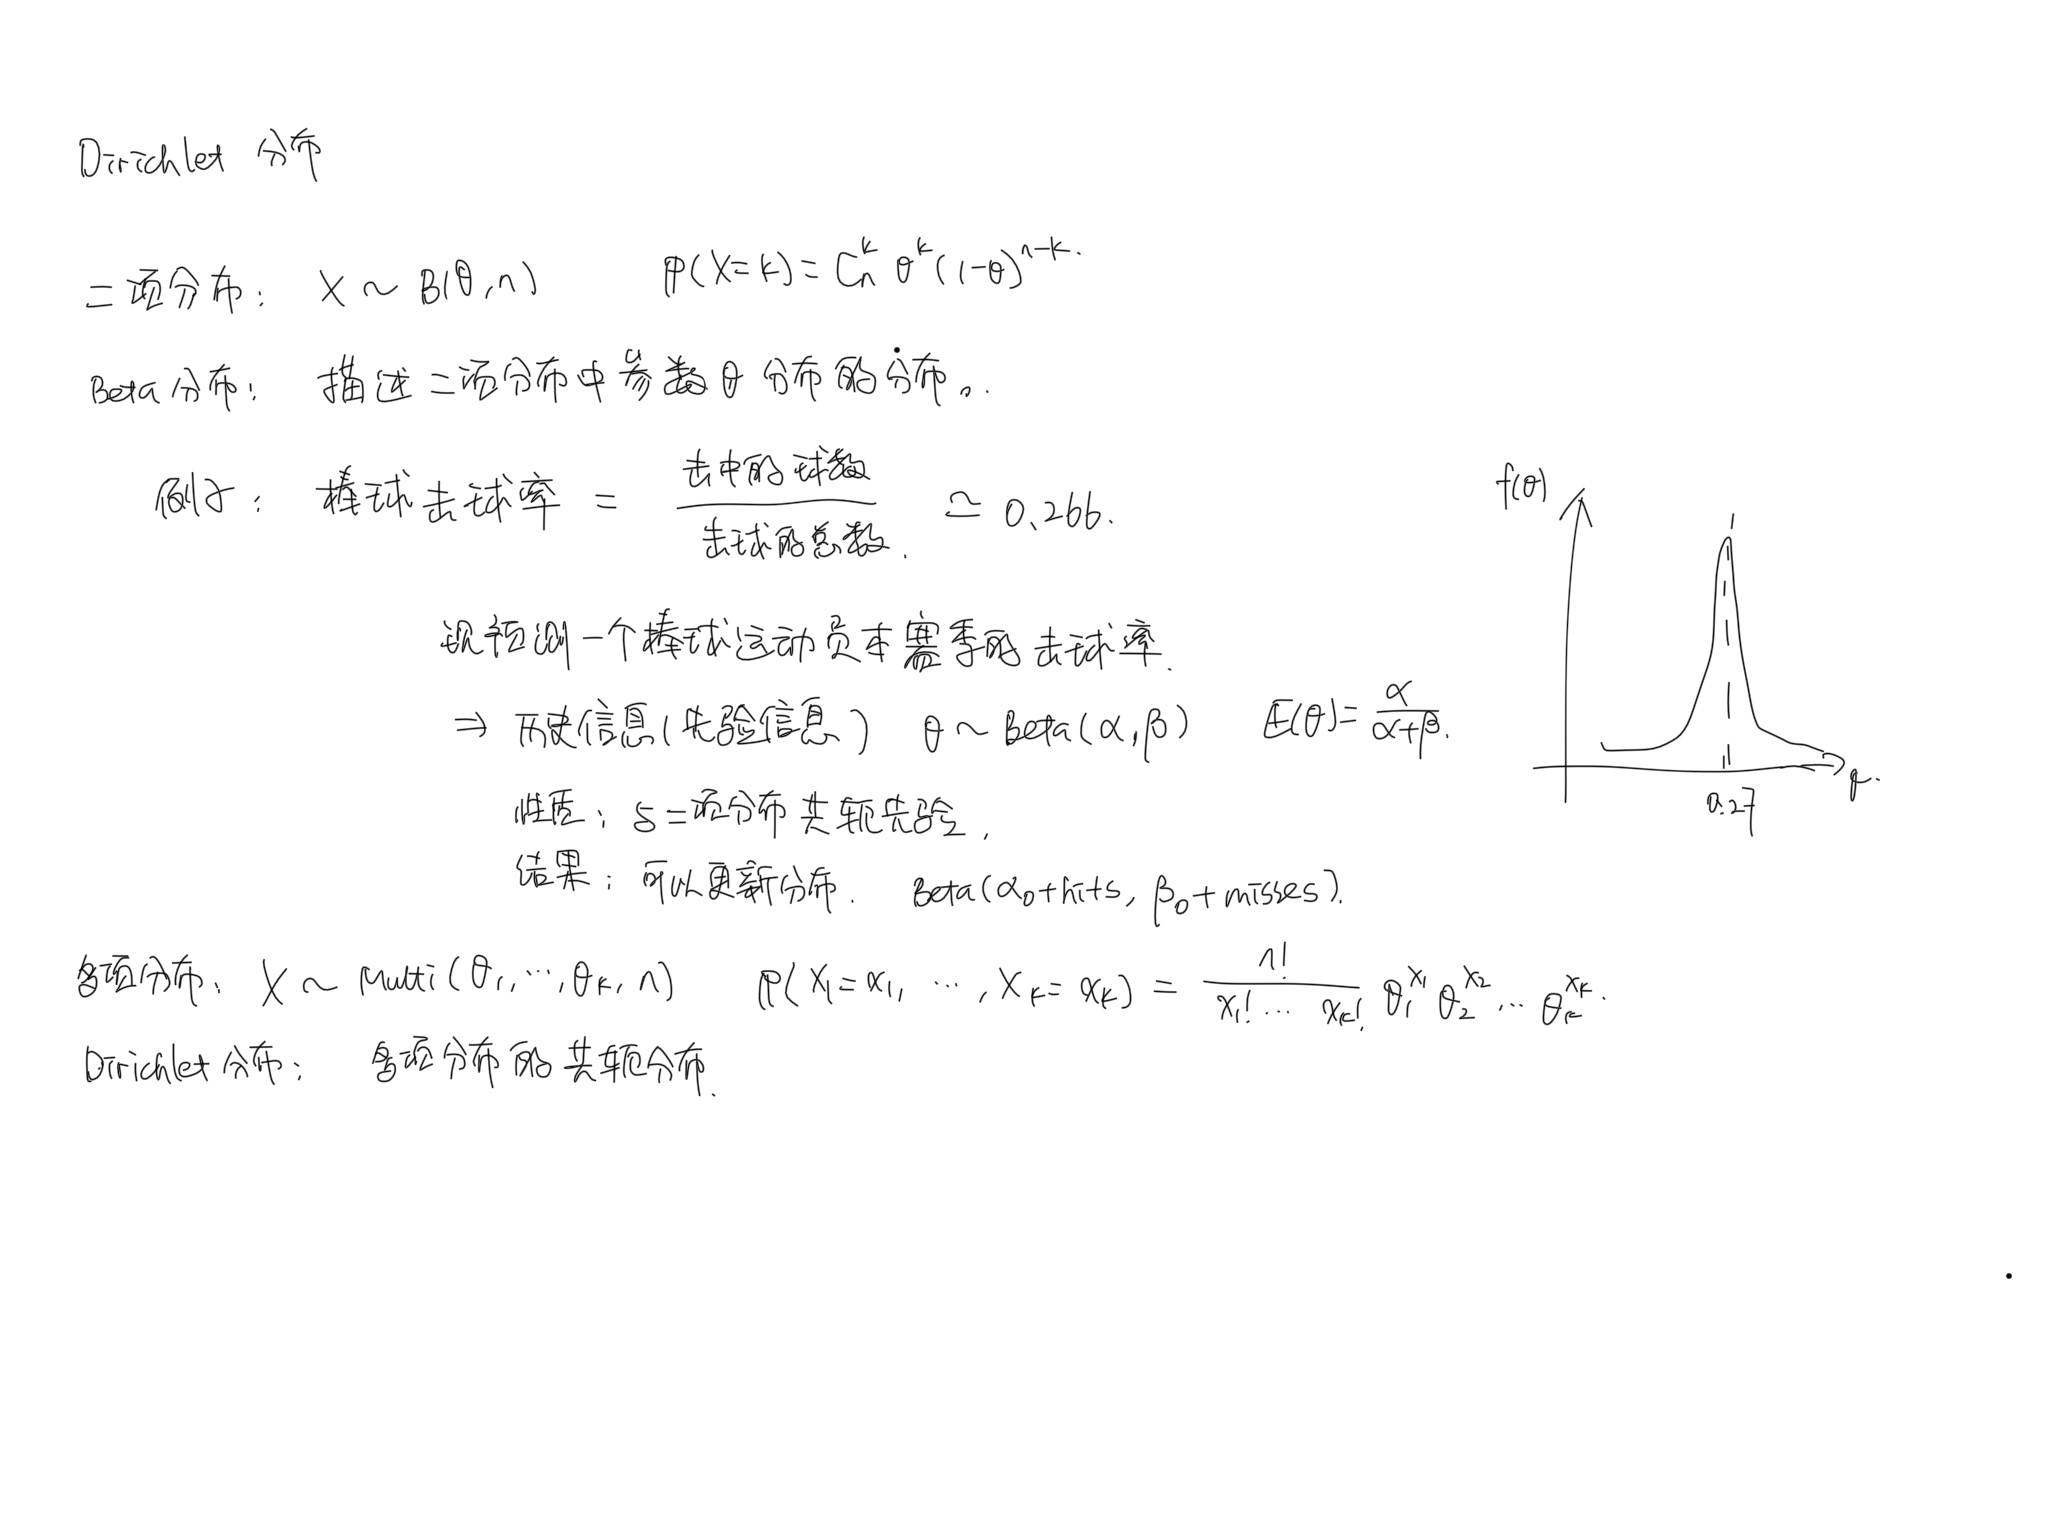 Dirichlet 分布
二项分布: X ~ B(θ,n) P(X=k) = C_n^k θ^k (1-θ)^{n-k}.
Beta分布: 描述二项分布中参数θ分布的分布。
例子: 棒球击球率 = 击中的球数 / 击球的总数. ≃ 0.266.
f(θ)
现预测一个棒球运动员本赛季的击球率.
⇒ 历史信息(先验信息) θ ~ Beta(α,β) E(θ) = α/(α+β).
0.27
性质: 与二项分布共轭先验.
结果: 可以更新分布. Beta(α_0+hits, β_0+misses).
多项分布: X ~ Multi(θ_1, ..., θ_k, n) P(X_1=x_1, ..., X_k=x_k) = n! / (x_1! ... x_k!) θ_1^{x_1} θ_2^{x_2} ... θ_k^{x_k}.
Dirichlet分布: 多项分布的共轭分布.